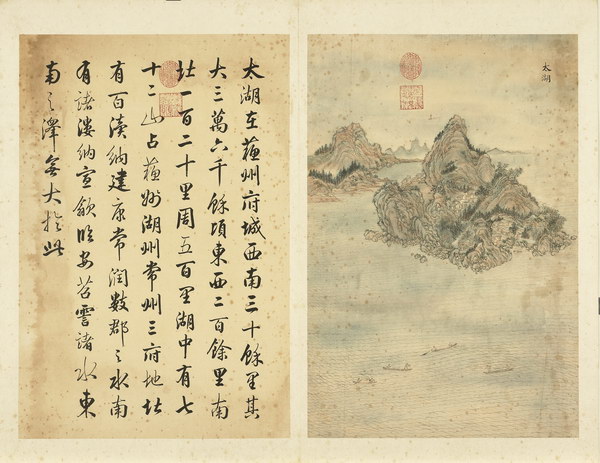 太湖
太湖在蘓州府城西南三十餘里其
大三萬六千餘頃東西二百餘里南
北一百二十里周五百里湖中有七
十二山占蘓州湖州常州三府地北
有百瀆納建康常潤數郡之水南
有諸漊納宣歙臨安苕霅諸水東
南之澤無大於此